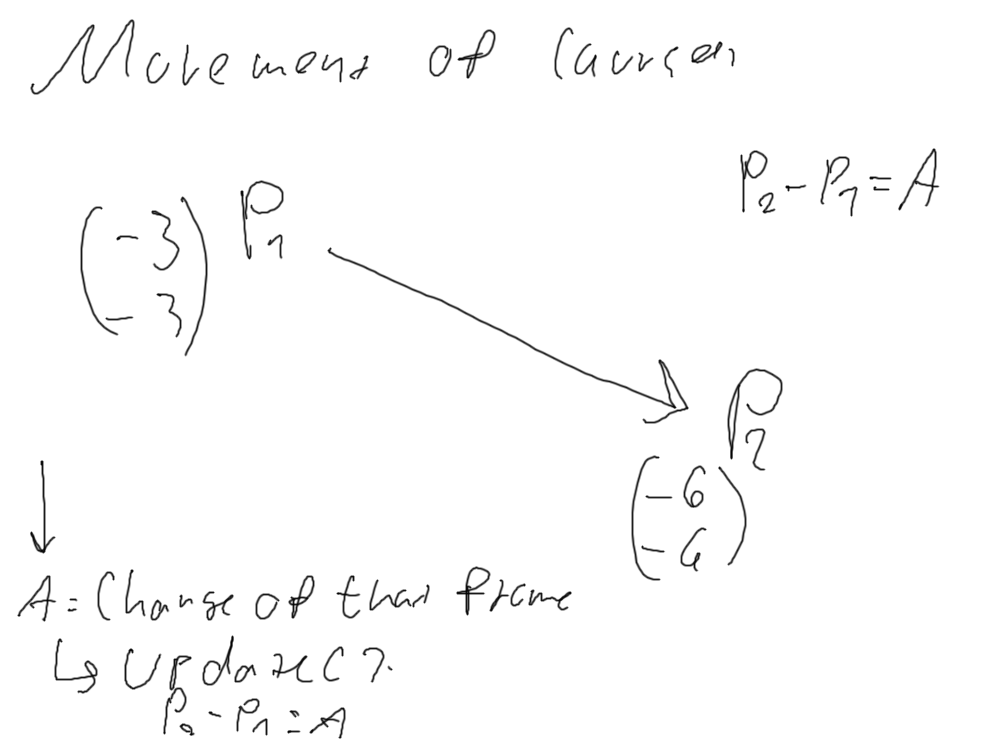 Movement of Courser
P2-P1=A
(-3
-3) P1
P2
(-6
-6)
A = Change of that frame
↳ Update()
P2-P1=A